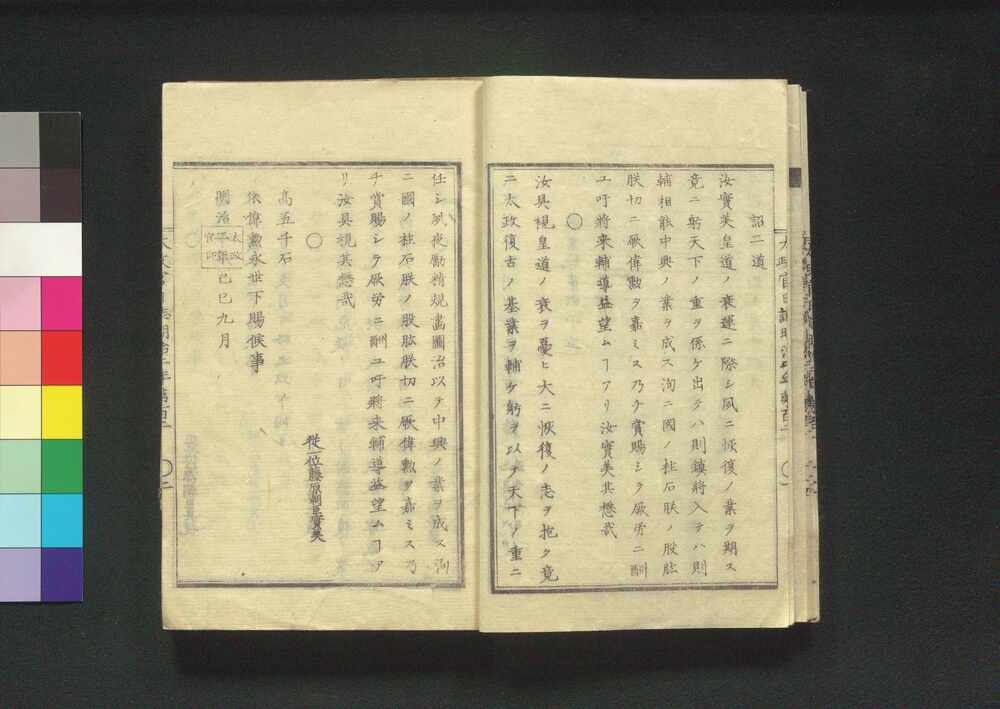 詔二道
汝實美皇道ノ衰運ニ際シ夙ニ恢復ノ業ヲ期ス
竟ニ躬天下ノ重ヲ係ケ出テハ則鎮將入テハ則
輔相能中興ノ業ヲ成ス洵ニ國ノ柱石朕ノ股肱
朕切ニ厥偉勲ヲ嘉ミス乃チ賞賜シテ厥勞ニ酬
ユ吁將来輔導益望ムヿアリ汝實美其懋哉
〇
汝具視皇道ノ衰ヲ憂ヒ大ニ恢復ノ志ヲ抱ク竟
ニ太政復古ノ基業ヲ輔ケ躬ヲ以テ天下ノ重ニ
任シ夙夜勵精規畫圖治以テ中興ノ業ヲ成ス洵
ニ國ノ柱石朕ノ股肱朕切ニ厥偉勲ヲ嘉ミス乃
チ賞賜シテ厥勞ニ酬ユ吁將来輔導益望ムヿア
リ汝具視其懋哉
〇
從一位藤原朝臣實美
高五千石
依偉勲永世下賜候事
明治二年己巳九月
太政
官印